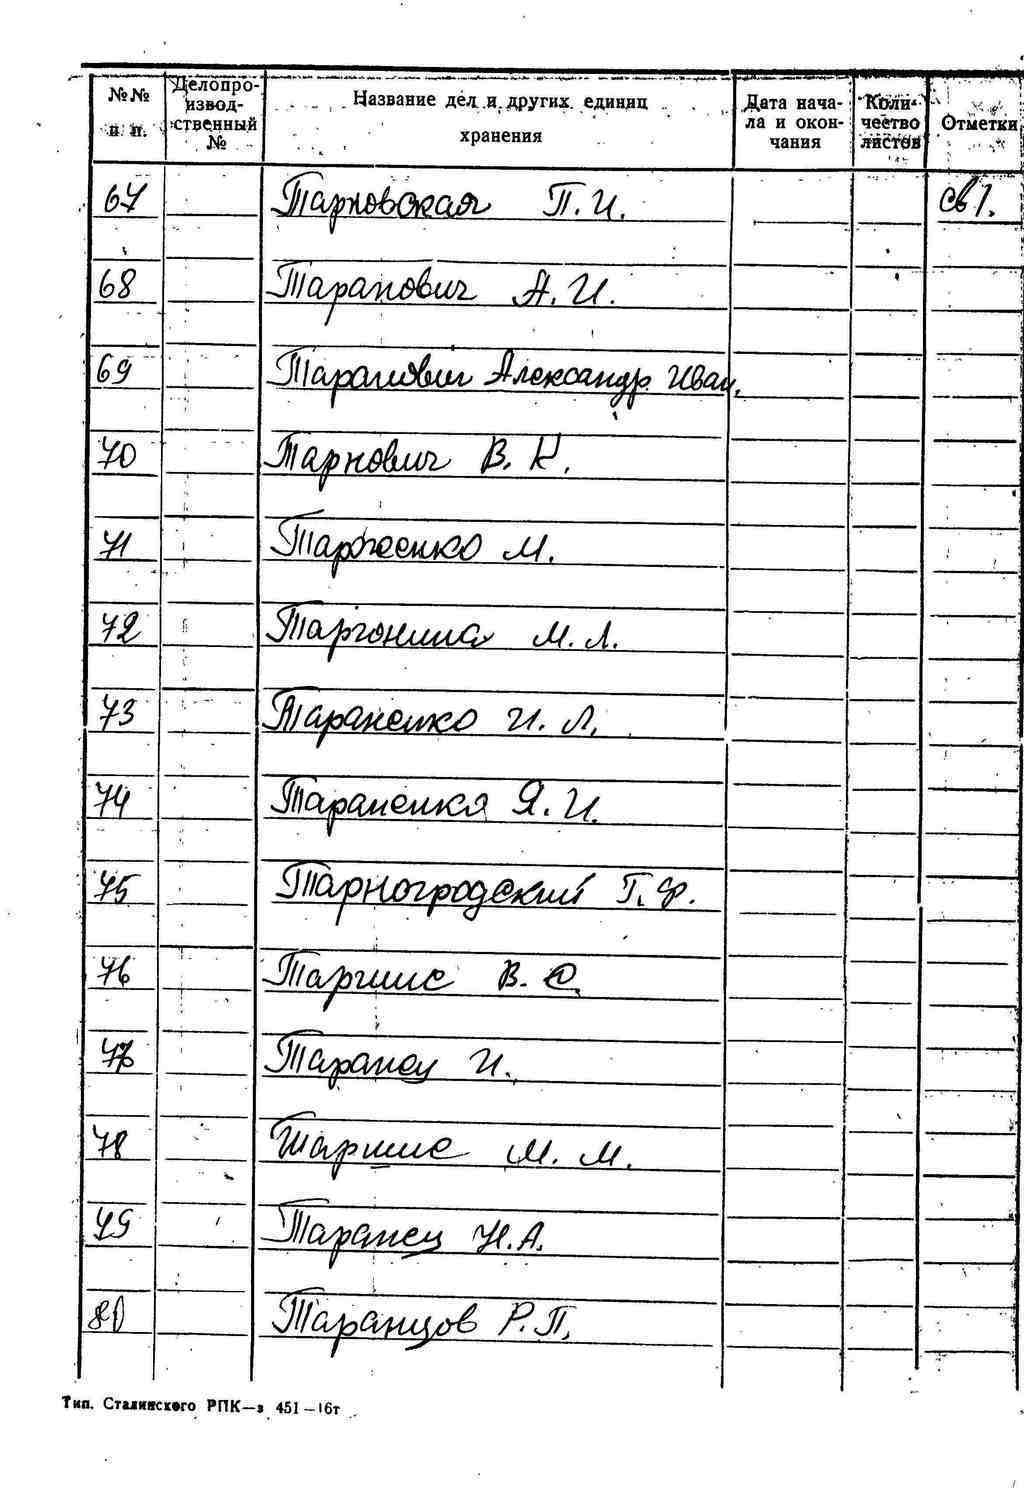 №№ п. п.
Делопро-
извод-
ственный
№
Название дел и других единиц
хранения
Дата нача-
ла и окон-
чания
Коли-
чество
листов
Отметки
67 Тарновская П. И. св 1.
68 Таранович А. И.
69 Таранович Александр Иван.
70 Тарнович В. К.
71 М.
72 Таргонина М. Л.
73 Тараненко И. Л.
74 Тараненкя Я. И.
75 Тарногродский Г. Ф.
76 Таршис В. О.
77 Таранец И.
78 Таршис М. М.
79 Таранец Н. А.
80 Таранцов Р. П.
Тип. Сталинского РПК—з 451—16т